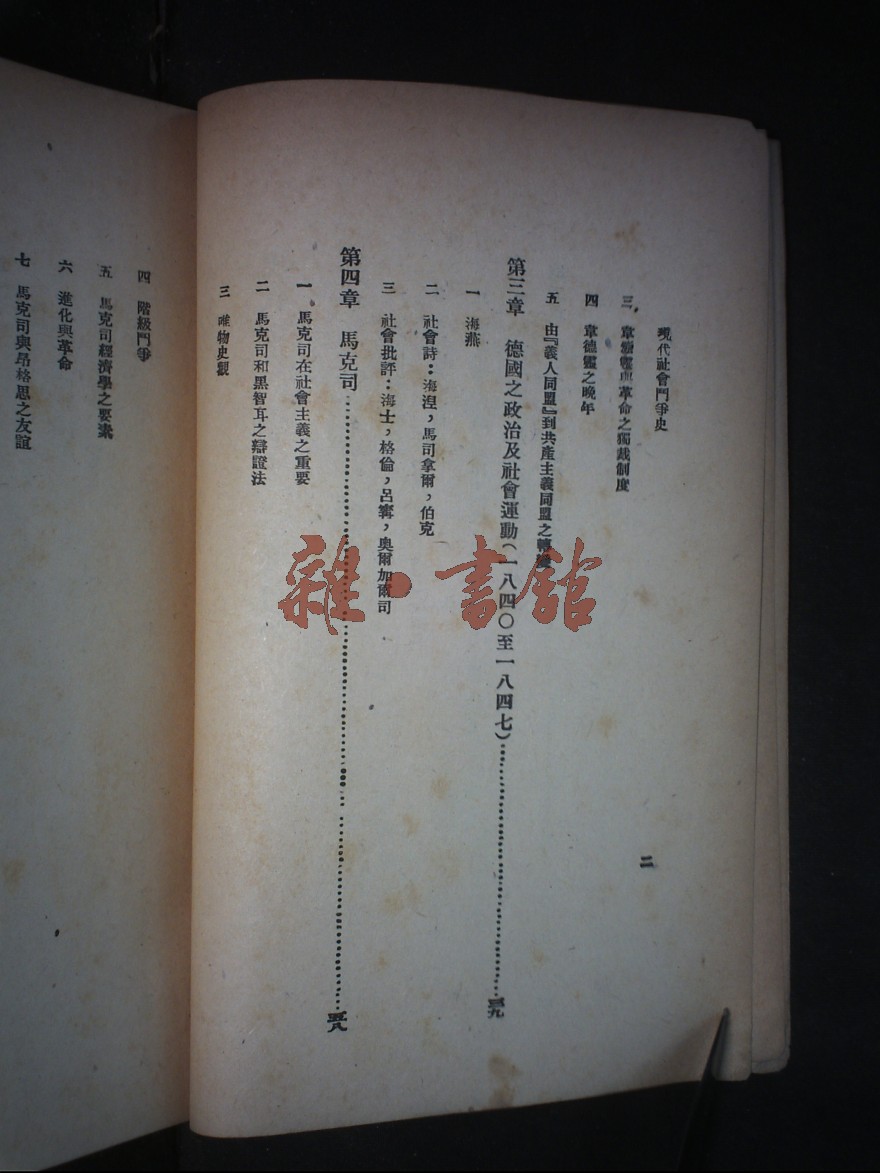 現代社會鬥爭史
三 韋德靈與革命之獨裁制度
四 韋德靈之晚年
五 由『義人同盟』到共產主義同盟之轉變
第三章 德國之政治及社會運動(一八四〇至一八四七)
一 海燕
二 社會詩:海湼,馬司拿爾,伯克
三 社會批評:海士,格倫,呂甯,奧爾加爾司
第四章 馬克司
一 馬克司在社會主義之重要
二 馬克司和黑智耳之辯證法
三 唯物史觀
二
四 階級鬥爭
五 馬克司經濟學之要素
六 進化與革命
七 馬克司與昂格思之友誼
雜·書館